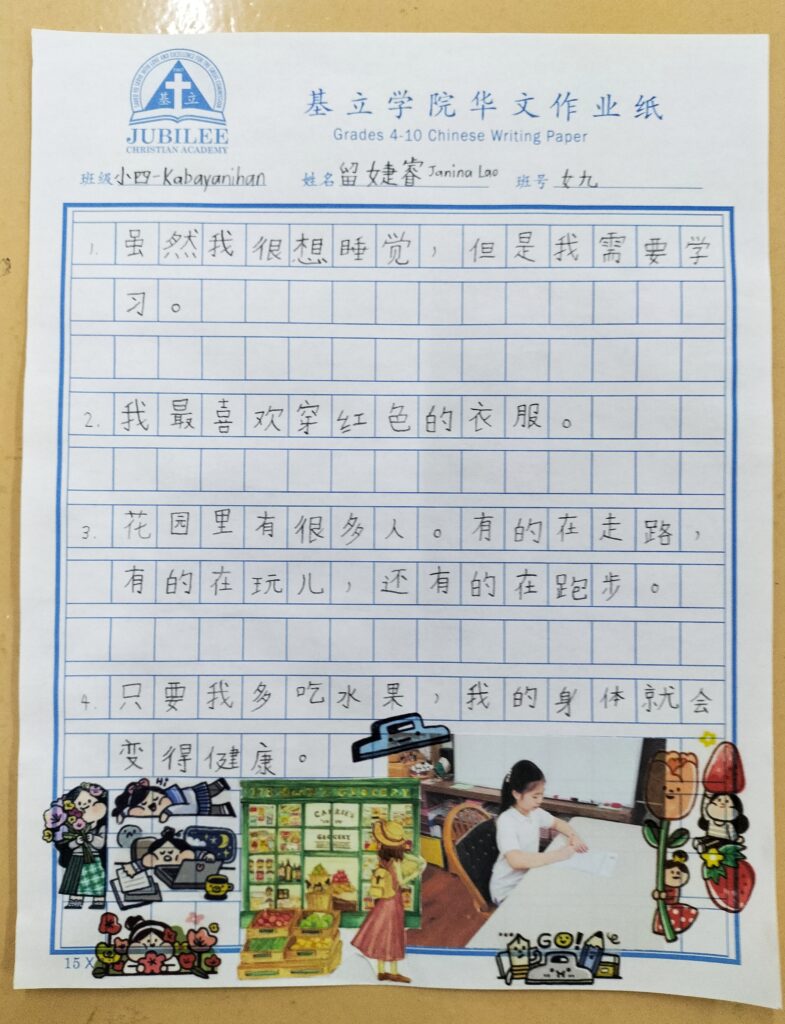 基立学院华文作业纸
JUBILEE
CHRISTIAN ACADEMY
Grades 4-10 Chinese Writing Paper
班级 小四-Kabayanihan 姓名 留婕睿 Janina Lao 班号 女九
1. 虽然我很想睡觉，但是我需要学
习。
2. 我最喜欢穿红色的衣服。
3. 花园里有很多人。有的在走路，
有的在玩儿，还有的在跑步。
4. 只要我多吃水果，我的身体就会
变得健康。
Hi
GROCERY
GO!
15 X